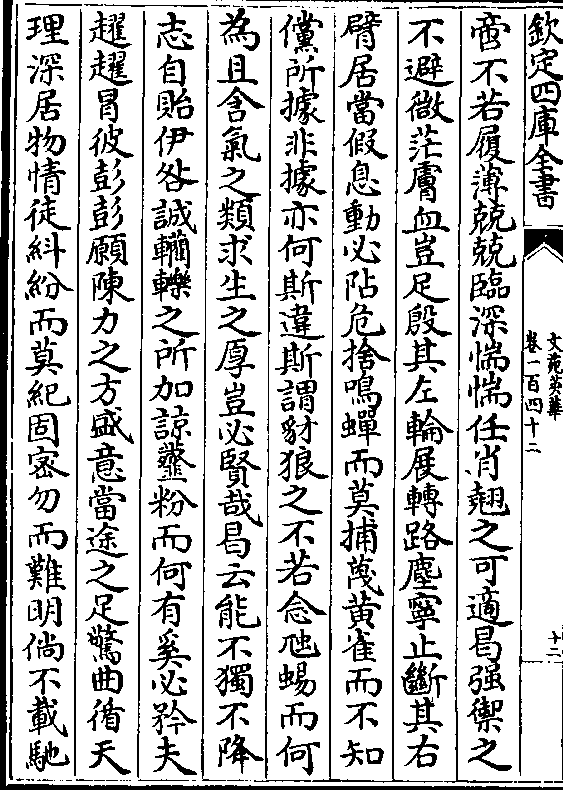 欽定四庫全書
文苑英華
卷一百四十二
十二
啻不若履薄兢兢臨深惴惴任肖翹之可適曷强禦之
不避微茫膚血豈足殷其左輪展轉路塵寧止斷其右
臂居當假息動必阽危捨鳴蟬而莫捕蔑黄雀而不知
儻所據非據亦何斯違斯謂豺狼之不若念虺蜴而何
為且含氣之類求生之厚豈必賢哉曷云能不獨不降
志自貽伊咎誠轥轢之所加諒虀粉而何有奚必矜夫
趯趯冒彼彭彭願陳力之方盛意當途之足驚曲循天
理深居物情徒糾紛而莫紀固宻勿而難明倘不載馳